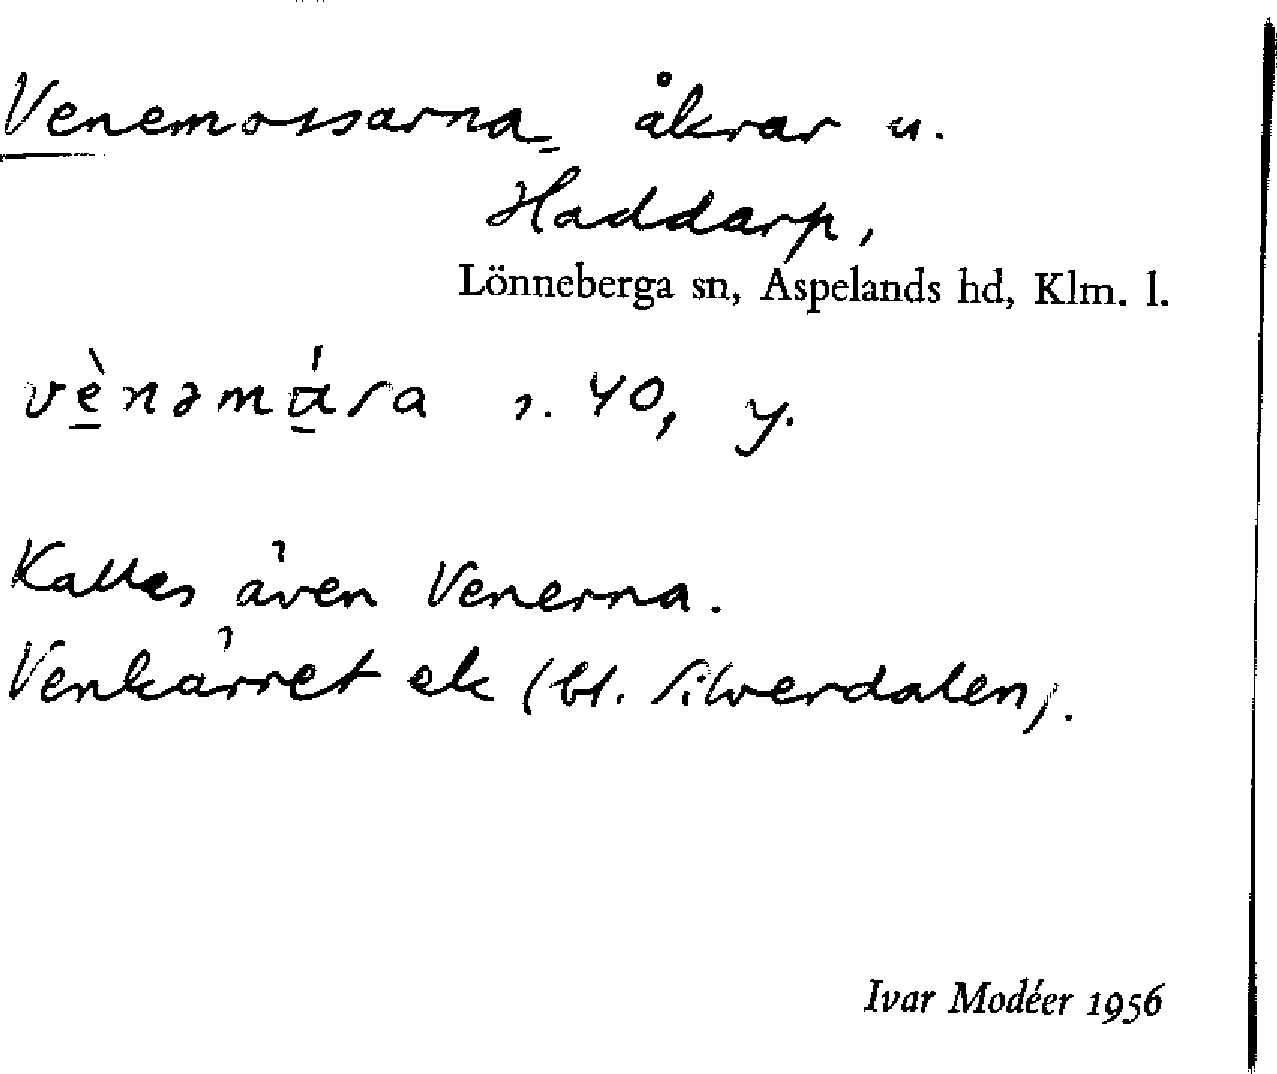 Venemossarna, åkrar u.
Haddarp,
Lönneberga sn, Aspelands hd, Klm. l.
vè̱nəmά̱sa s. 40, y.
Kallas även Venerna.
Venkärret ek (bl. Silverdalen).
Ivar Modéer 1956